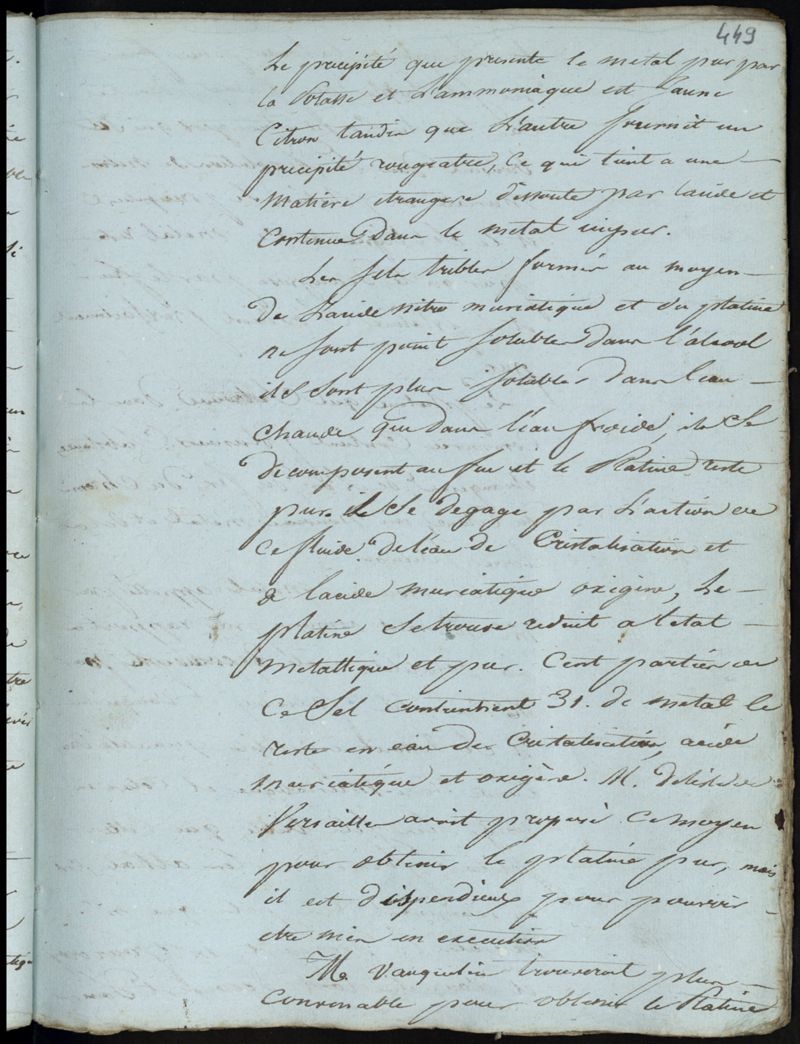 449
Le precipité que presente le metal pur par
la Potasse et L'ammoniaque est Jaune
Citron tandis que L'autre fournit un
precipité rougeatre, Ce qui tient a une
Matiere etrangere dissoute par lacide et
Contenue dans le metal impur.
Les sels tribles formés au moyen
de Lacide nitro muriatique et du platine
ne sont point solubles dans l'alcool
ils sont plus solubles dans l'eau
chaude que dans l'eau froide, ils se
decomposent au feu et le Platine reste
pur. il se degage par L'action de
ce fluide de l'eau de Cristalisation et
de lacide muriatique oxigéné, Le
platine se trouve reduit a l'etat
metallique et pur. Cent parties de
Ce Sel contiennent 31. de metal le
reste en eau de Cristalisation, acide
muriatique et oxigène. M. delisle de
Versaille avoit proposé Ce moyen
pour obtenir le platine pur, mais
il est dispendieux pour pouvoir
etre mis en execution
M. Vauquelin trouveroit plus
Convenable pour obtenir le Platine